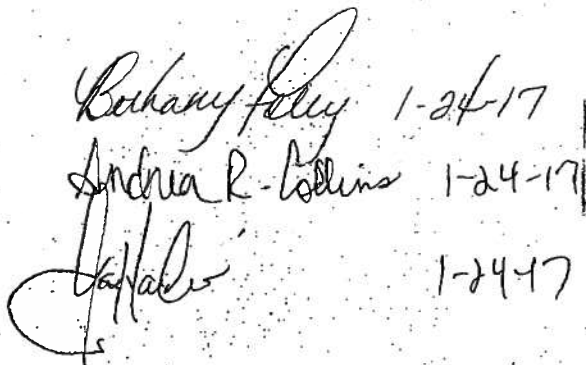 Bethany Foley 1-24-17
Andrea R. Collins 1-24-17
1-24-17